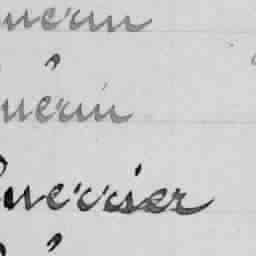 Guerin
Guerin
Guerrier